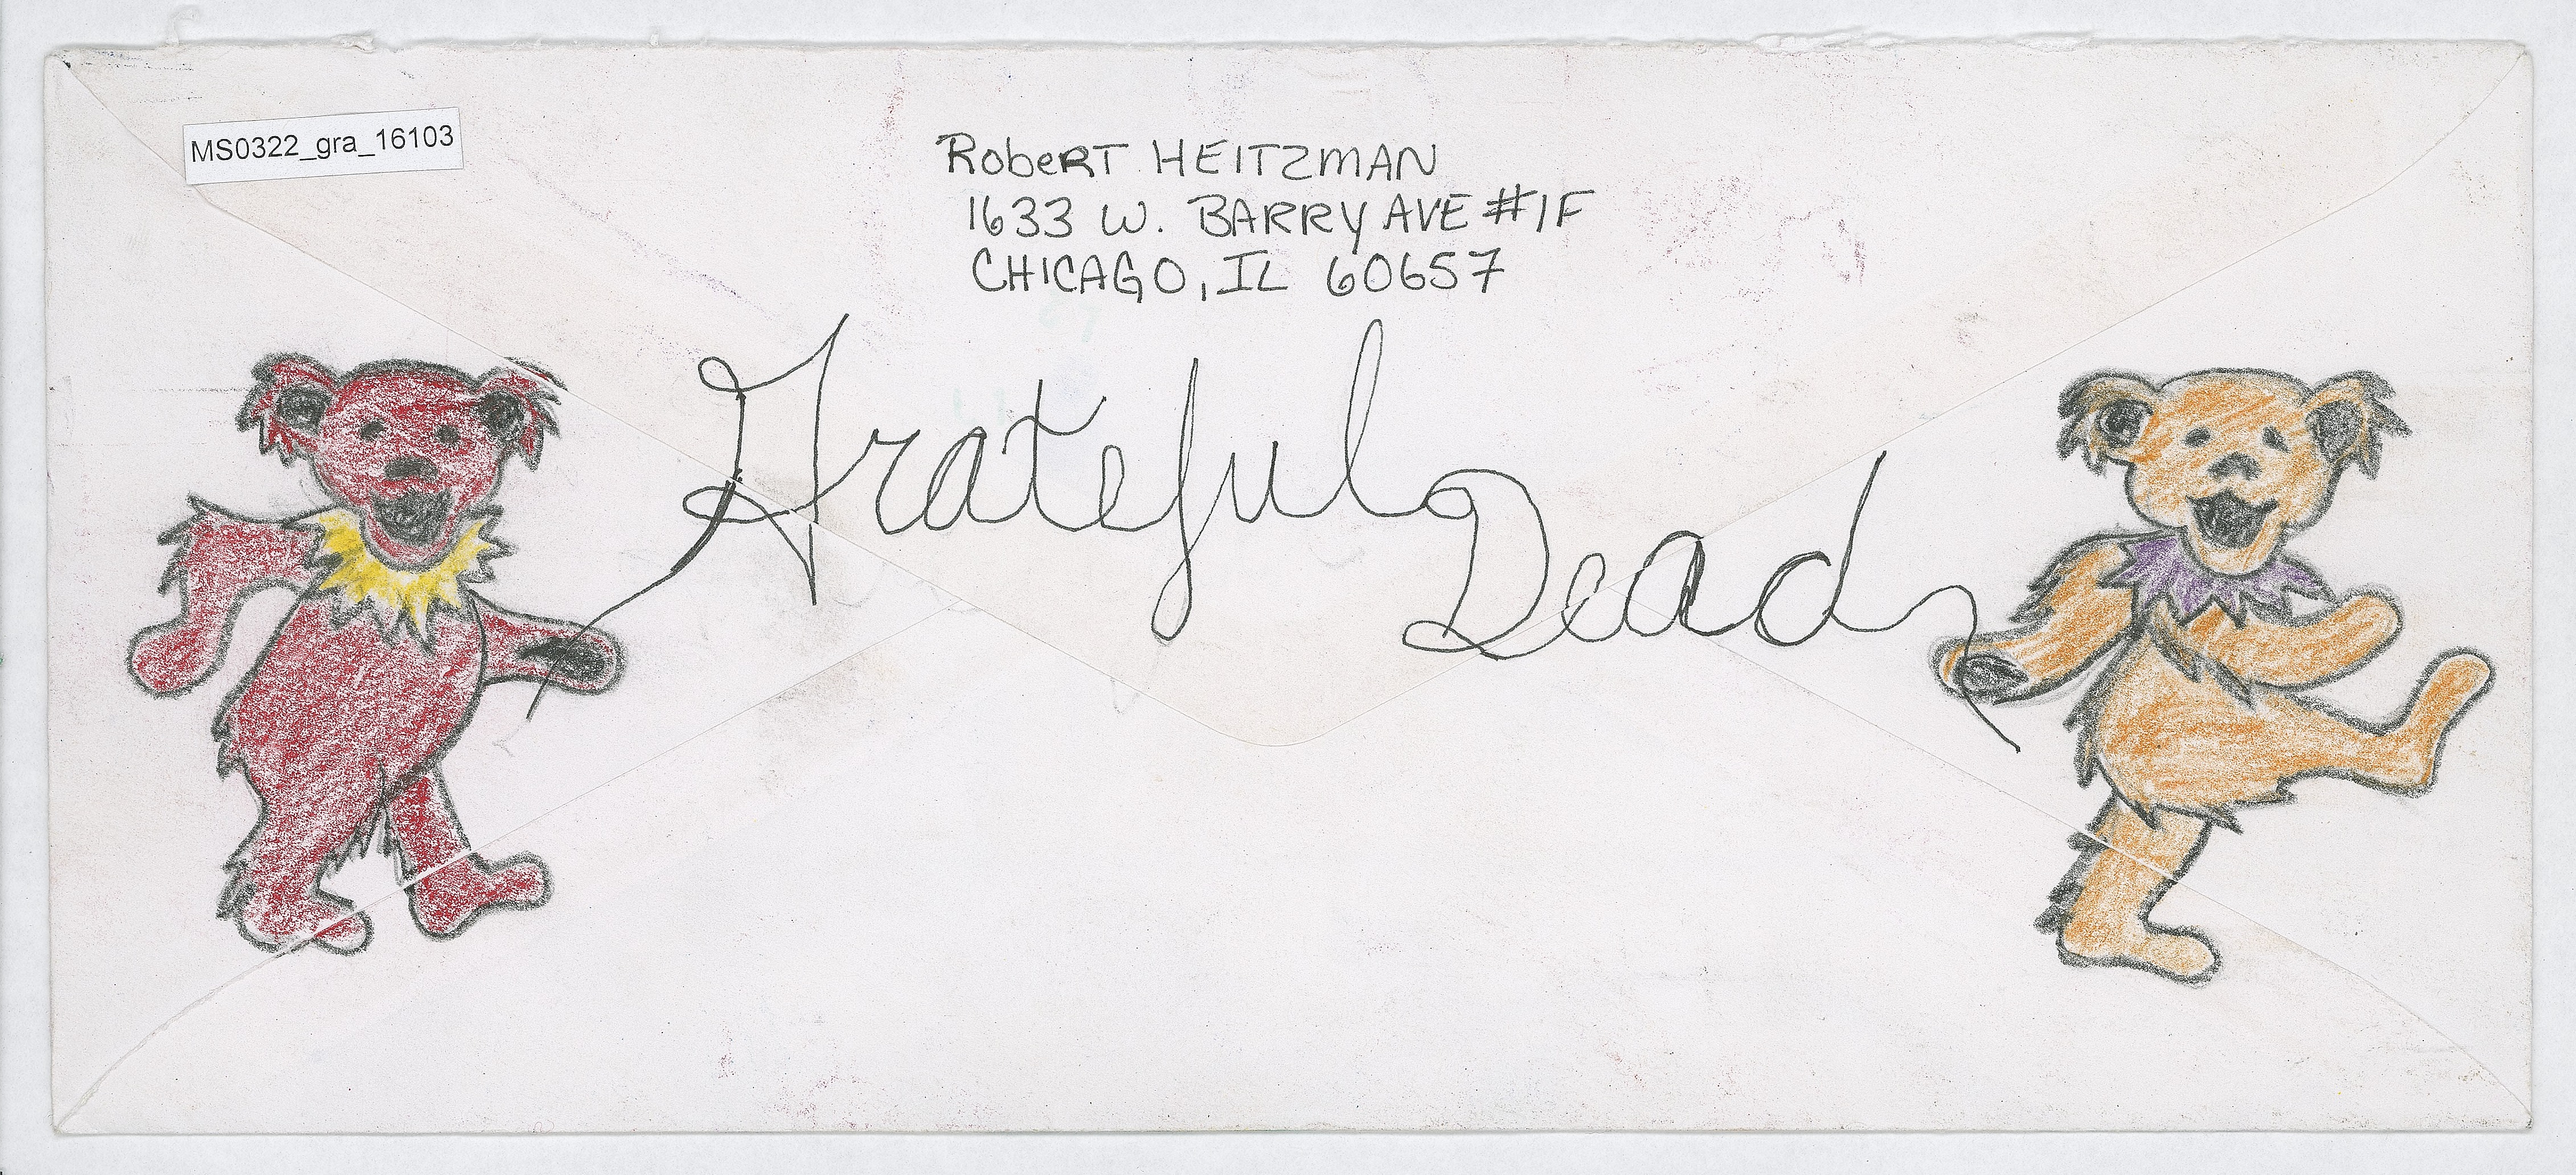 MS0322_gra_16103
Robert HEITZMAN
1633 W. BARRY AVE #1F
CHICAGO, IL 60657
Grateful
Dead